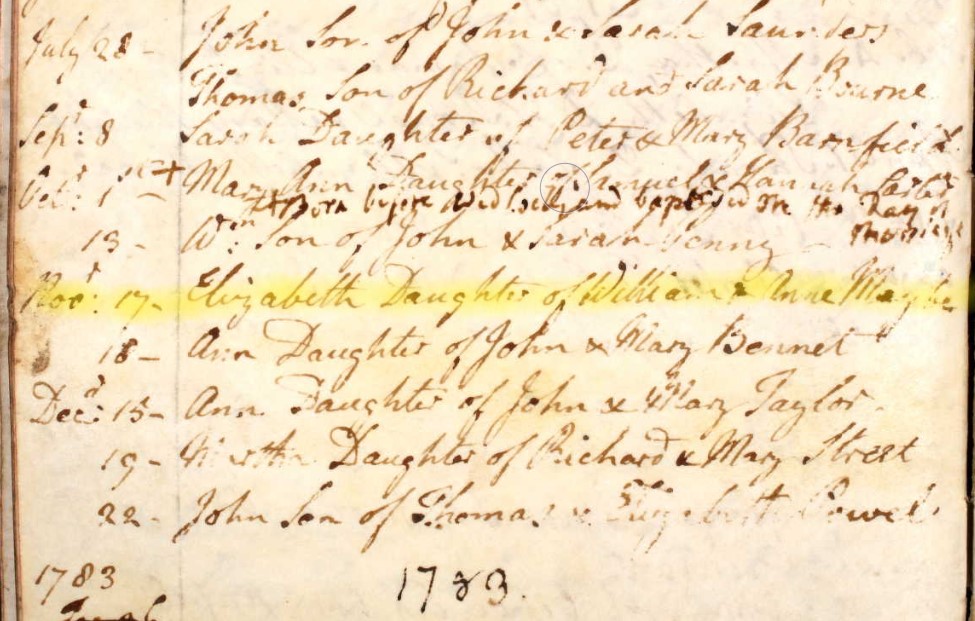 July 28 - John Son of John & Sarah Saunders
Thomas Son of Richard and Sarah Bourne
Sepr: 8 Sarah Daughter of Peter & Mary Barnfield
Octr: 1st + Mary Ann Daughter of Samuel & Hannah Carter
+ Born before Wedlock and baptized on the Day of
Marriage
13 - Wm Son of John & Sarah
Novr: 17 - Elizabeth Daughter of William & Anne
18 - Ann Daughter of John & Mary Bennet
Decr: 15 - Ann Daughter of John & Mary Taylor
19 - Martha Daughter of Richard & Mary Street
22 - John Son of Thomas & Elizabeth Powel
1783 1783.